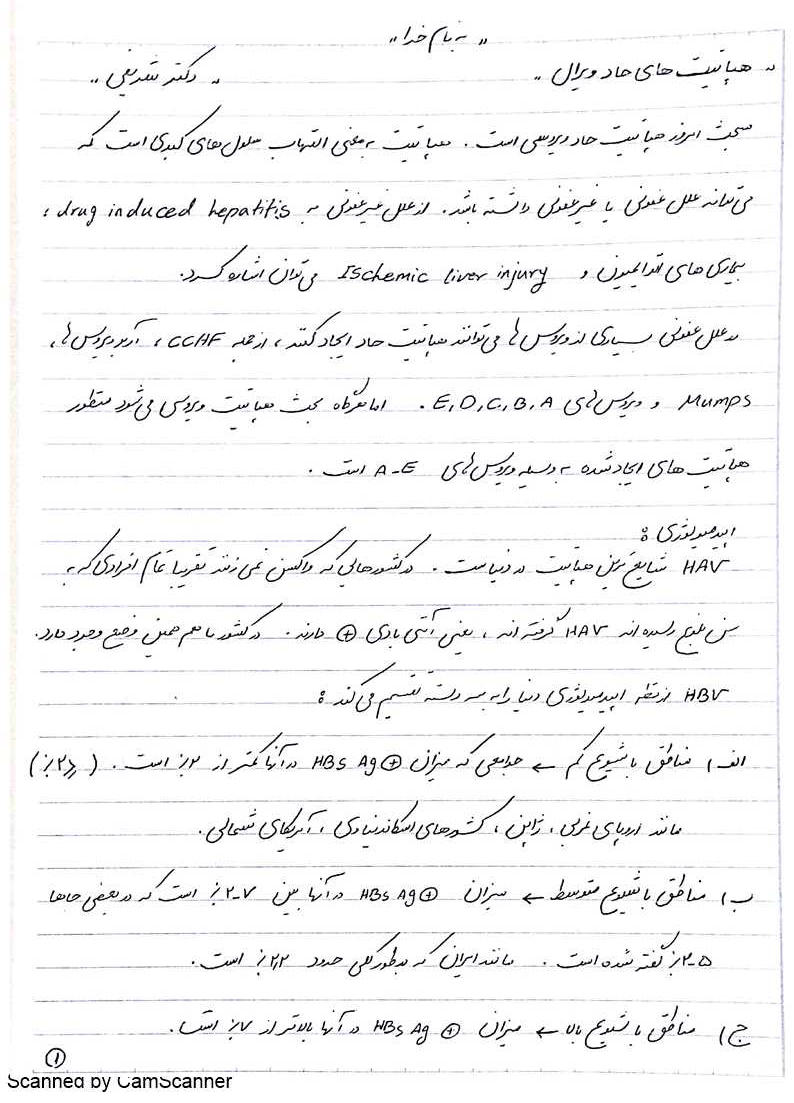 "به نام خدا"
"هپاتیت های حاد ویرال" "دکتر شریفی"
مبحث امروز هپاتیت حاد ویروسی است. هپاتیت به معنی التهاب سلول های کبدی است که
می تواند علل عفونی یا غیر عفونی داشته باشد. از علل غیر عفونی به drug induced hepatitis،
بیماری های اتوایمیون و Ischemic liver injury می توان اشاره کرد.
در علل عفونی بسیاری از ویروس ها می توانند هپاتیت حاد ایجاد کنند، از جمله CCHF، آربوویروس ها،
Mumps و ویروس های E,D,C,B,A. اما هرگاه بحث هپاتیت ویروسی می شود منظور
هپاتیت های ایجاد شده به وسیله ویروس های A-E است.
اپیدمیولوژی:
HAV شایع ترین هپاتیت در دنیاست. در کشورهایی که واکسن نمی زنند تقریبا تمام افرادی که به
سن بلوغ رسیده اند HAV گرفته اند، یعنی آنتی بادی ⊕ دارند. در کشور ما هم همین وضع وجود دارد.
HBV از نقطه اپیدمیولوژی دنیا را به سه دسته تقسیم می کند:
الف) مناطق با شیوع کم ← جوامعی که میزان HBs Ag ⊕ در آنها کمتر از ۲٪ است. (۲٪>)
مانند اروپای غربی، ژاپن، کشورهای اسکاندیناوی، آمریکای شمالی.
ب) مناطق با شیوع متوسط ← میزان HBs Ag ⊕ در آنها بین ۷-۲٪ است که در بعضی جاها
۵-۲٪ گفته شده است. مانند ایران که بطور کلی حدود ۲,۲٪ است.
ج) مناطق با شیوع بالا ← میزان HBs Ag ⊕ در آنها بالاتر از ۷٪ است.
۱
Scanned by CamScanner